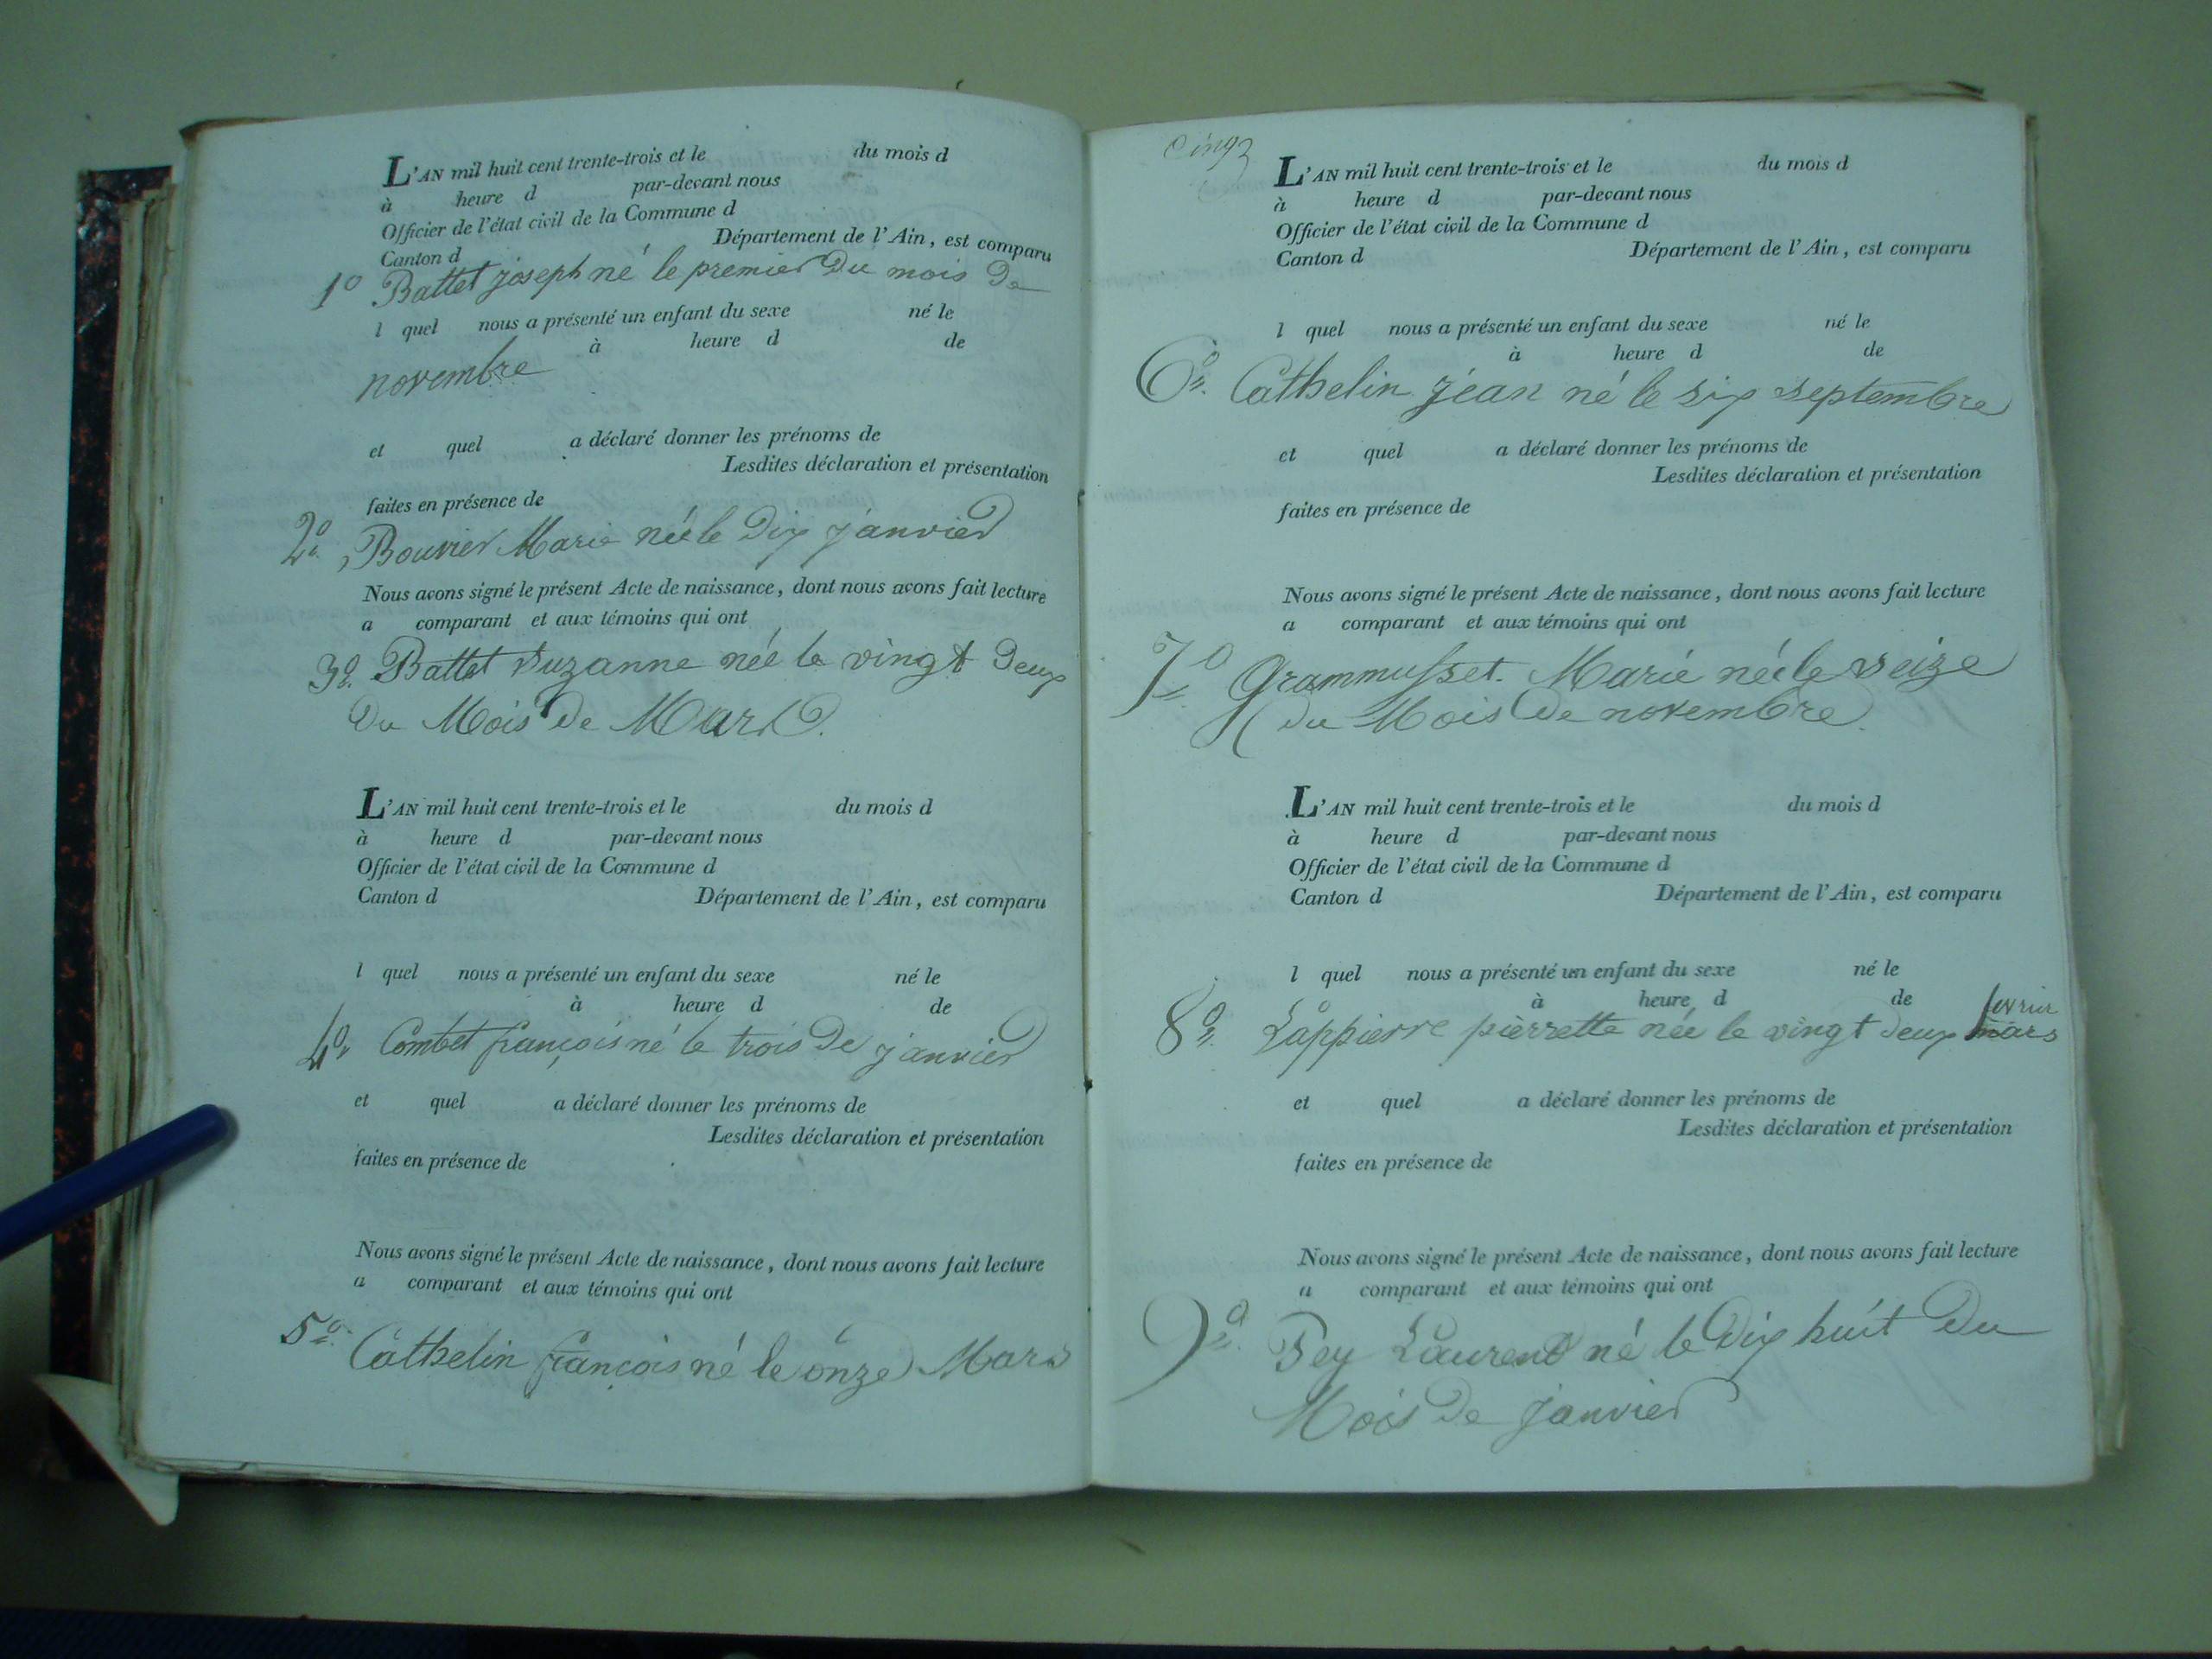 L'AN mil huit cent trente-trois et le du mois d
à heure d par-devant nous
Officier de l'état civil de la Commune d
Canton d Département de l'Ain, est comparu
1º Battet joseph né le premier du mois de
l quel nous a présenté un enfant du sexe né le
à heure d de
novembre
et quel a déclaré donner les prénoms de
Lesdites déclaration et présentation
faites en présence de
2º Bouvier Marie née le dix janvier
Nous avons signé le présent Acte de naissance, dont nous avons fait lecture
a comparant et aux témoins qui ont
3º. Battet Suzanne née le vingt deux
du Mois de Mars.
L'AN mil huit cent trente-trois et le du mois d
à heure d par-devant nous
Officier de l'état civil de la Commune d
Canton d Département de l'Ain, est comparu
l quel nous a présenté un enfant du sexe né le
à heure d de
4º Combet françois né le trois de janvier
et quel a déclaré donner les prénoms de
Lesdites déclaration et présentation
faites en présence de
Nous avons signé le présent Acte de naissance, dont nous avons fait lecture
a comparant et aux témoins qui ont
5º Cathelin françois né le onze Mars
cinq
L'AN mil huit cent trente-trois et le du mois d
à heure d par-devant nous
Officier de l'état civil de la Commune d
Canton d Département de l'Ain, est comparu
l quel nous a présenté un enfant du sexe né le
à heure d de
6º. Cathelin jean né le six septembre
et quel a déclaré donner les prénoms de
Lesdites déclaration et présentation
faites en présence de
Nous avons signé le présent Acte de naissance, dont nous avons fait lecture
a comparant et aux témoins qui ont
7º Grammusset. Marie née le seize
du Mois de novembre.
L'AN mil huit cent trente-trois et le du mois d
à heure d par-devant nous
Officier de l'état civil de la Commune d
Canton d Département de l'Ain, est comparu
l quel nous a présenté un enfant du sexe né le
à heure d de
fevrier
8º. Lappierre pierrette née le vingt deux mars
et quel a déclaré donner les prénoms de
Lesdites déclaration et présentation
faites en présence de
Nous avons signé le présent Acte de naissance, dont nous avons fait lecture
a comparant et aux témoins qui ont
9º. Pey Laurent né le dix huit du
Mois de janvier